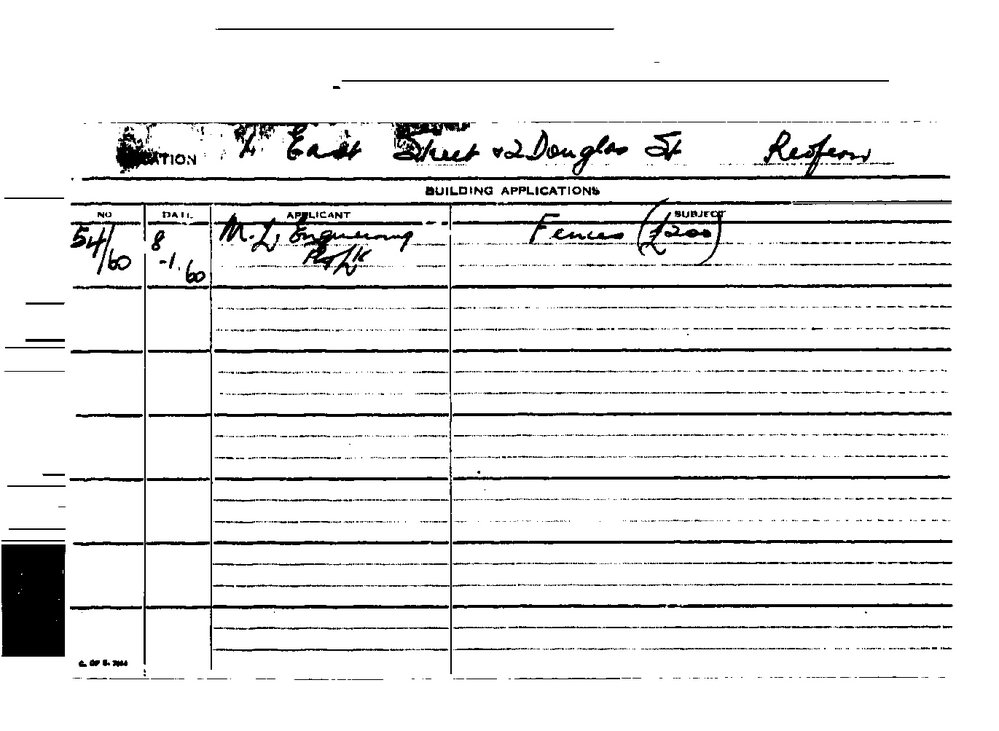 East Street & 2 Douglas St Redfern
BUILDING APPLICATIONS
NO DATE APPLICANT SUBJECT
54/60 8-1-60 M.L. Engineering Fences (£200)
C. OF S. 7044